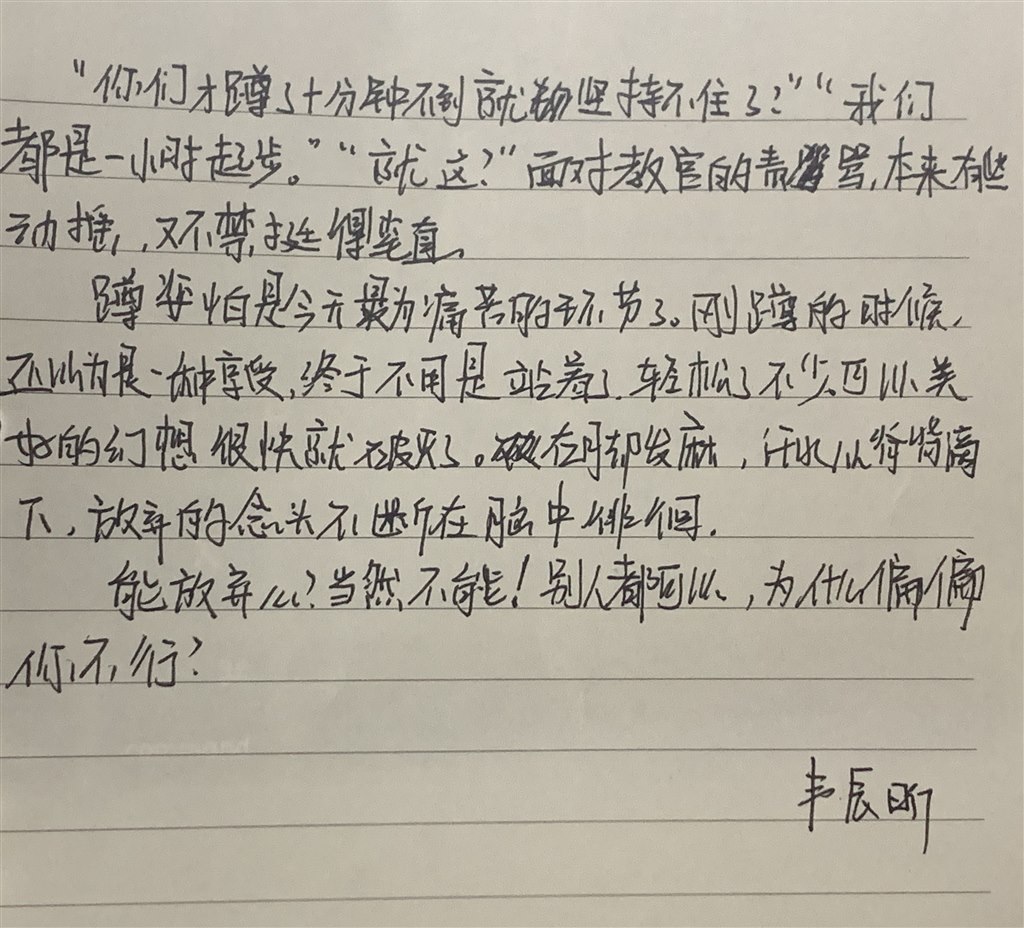 “你们才蹲了十分钟不到就坚持不住了?”“我们
都是一小时起步。”“就这?”面对教官的责骂,本来有些
动摇,又不禁挺得笔直。
蹲姿怕是今天最为痛苦的环节了。刚蹲的时候,
还以为是一种享受,终于不用是站着了,轻松了不少。可以美
好的幻想很快就破灭了。在脚发麻,汗水从脊背滴
下,放弃的念头不断在脑中徘徊.
能放弃么?当然不能!别人都可以,为什么偏偏
你不行?
辰昕